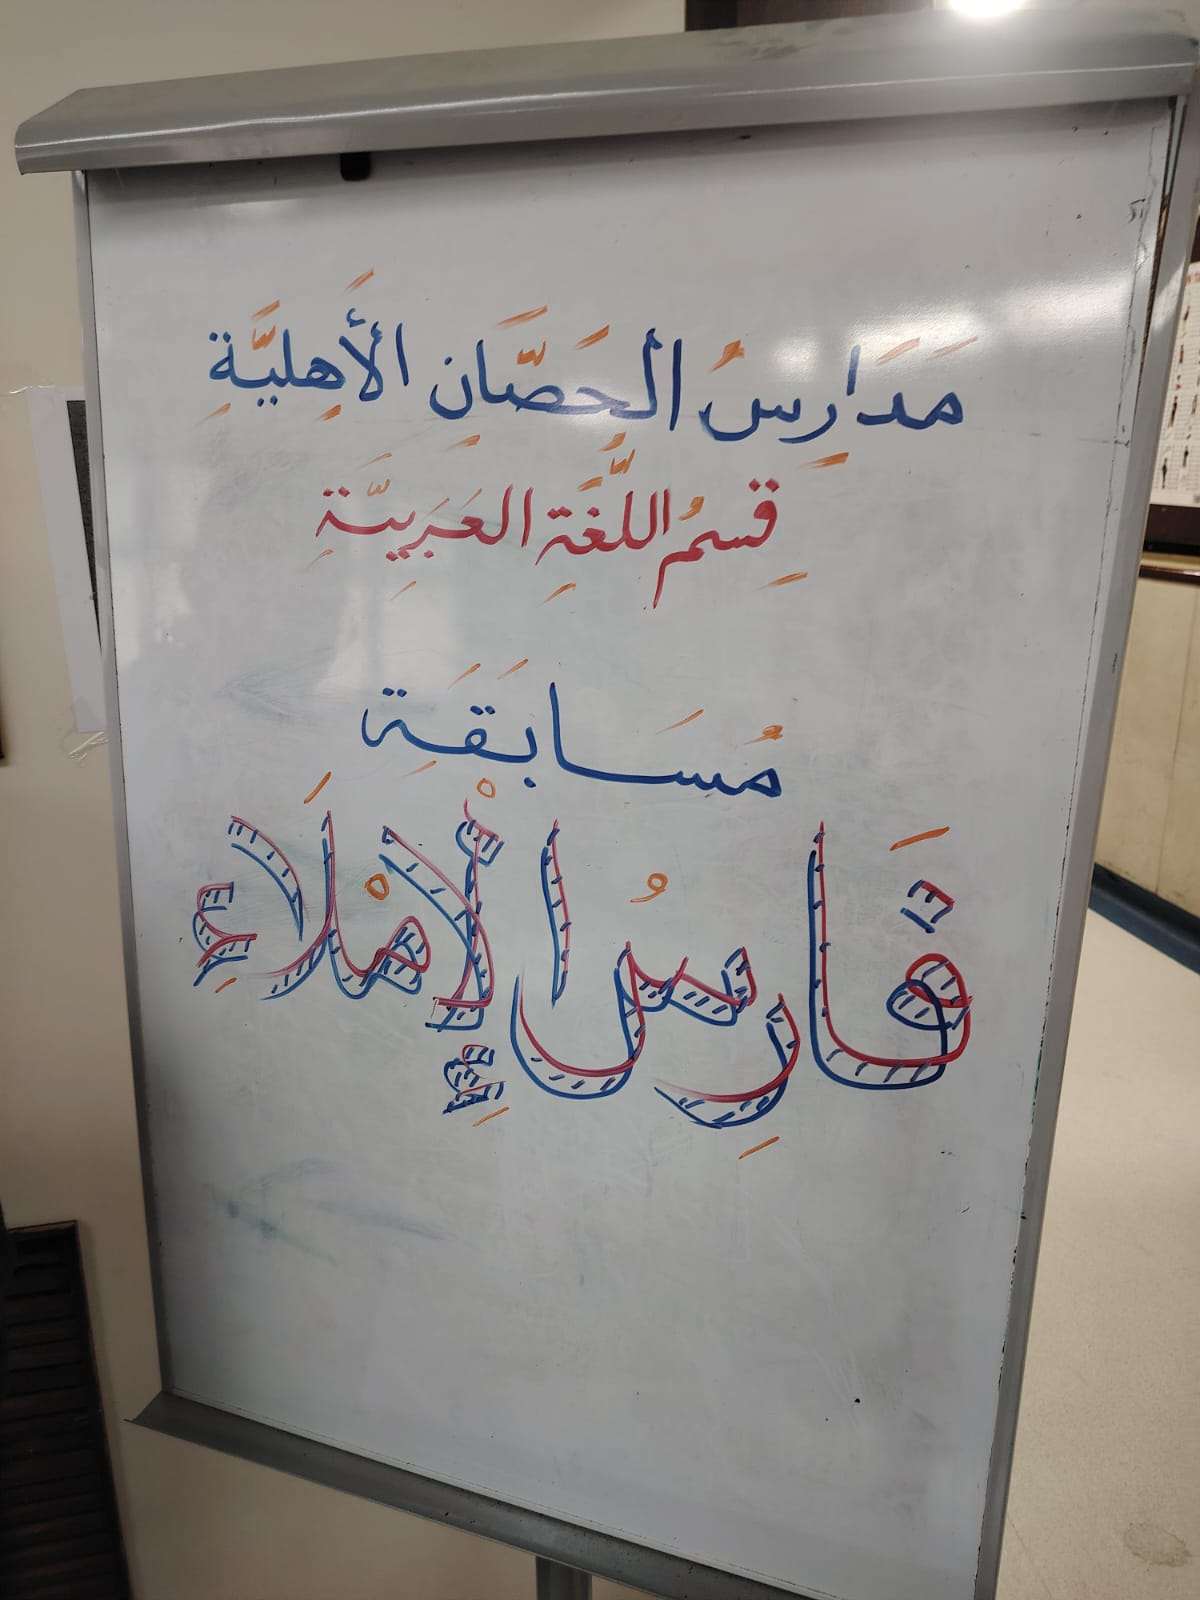 مَدَارِسُ الْحَصَّانِ الأَهلِيَّةِ
قِسمُ اللُّغَةِ العَرَبِيَّةِ
مُسَابَقَة
فَارِسُ الْإِمْلَاءِ